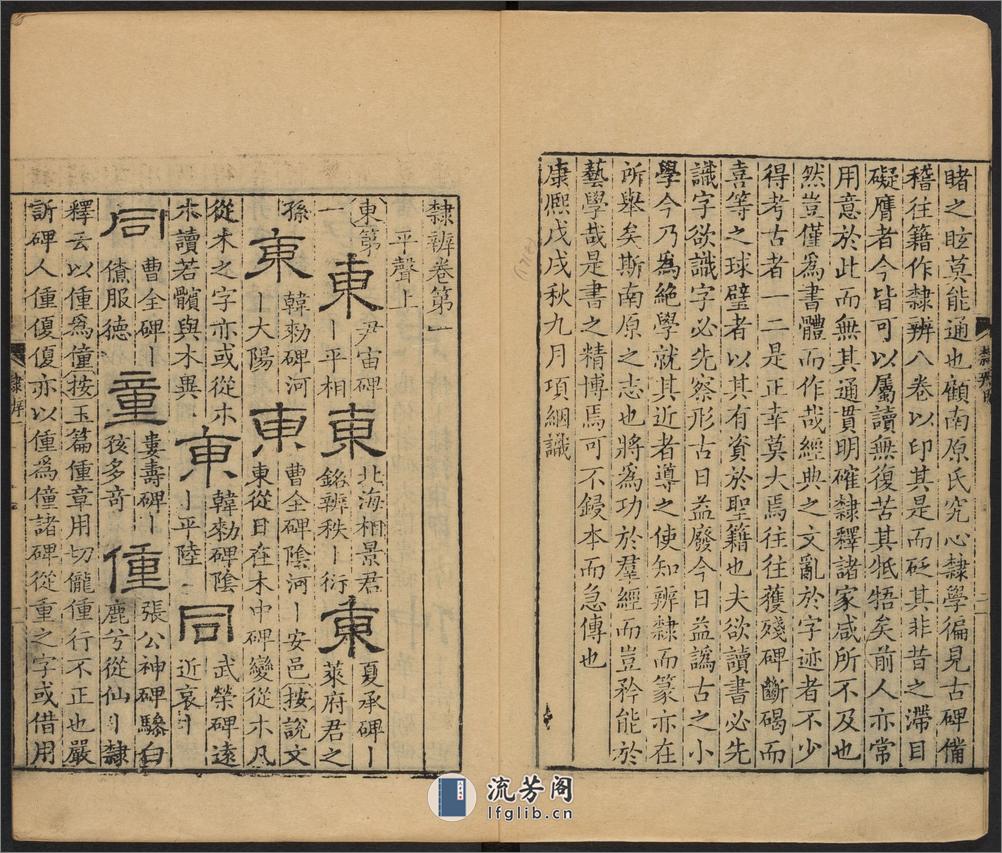 睹之眩莫能通也顧南原氏究心隸學徧見古碑備
稽往籍作隸辨八卷以印其是而砭其非昔之滯目
礙膺者今皆可以屬讀無復苦其牴牾矣前人亦常
用意於此而無其通貫明確隸釋諸家咸所不及也
然豈僅爲書體而作哉經典之文亂於字迹者不少
得考古者一二是正幸莫大焉往往獲殘碑斷碣而
喜等之球璧者以其有資於聖籍也夫欲讀書必先
識字欲識字必先察形古日益廢今日益譌古之小
學今乃爲絕學就其近者導之使知辨隸而篆亦在
所舉矣斯南原之志也將爲功於羣經而豈矜能於
藝學哉是書之精博焉可不鋟本而急傳也
康熙戊戌秋九月項絪識
隸辨卷第一
平聲上
東第一 東 尹宙碑丨平相 東 北海相景君銘辨秩丨衍 東 夏承碑丨萊府君之
孫 東 韓勑碑河丨大陽 東 曹全碑陰河丨安邑按說文東從日在木中碑變從木凡
從木之字亦或從木木讀若髕與木異 東 韓勑碑陰丨平陸 同 武榮碑遠近哀丨
同 曹全碑丨儐服德 童 婁壽碑丨孩多奇 僮 張公神碑驂白鹿兮從仙丨隸
釋云以僮爲僮按玉篇僮章用切儱僮行不正也嚴
訢碑人僮優優亦以僮爲僮諸碑從重之字或借用
隸序
二
流芳阁
lfglib.cn